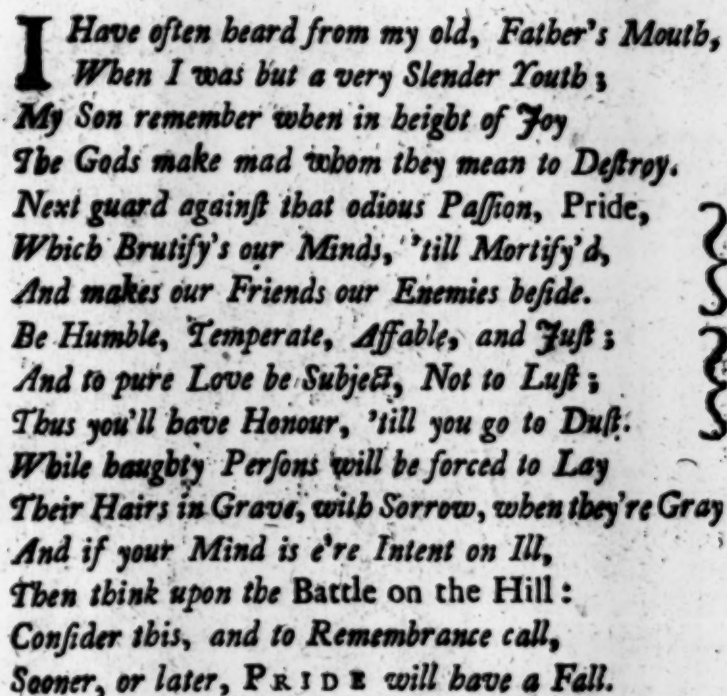 I Have often heard from my old, Father's Mouth,
When I was but a very Slender Youth;
My Son remember when in height of Joy
The Gods make mad whom they mean to Deſtroy.
Next guard againſt that odious Paſſion, Pride,
Which Brutify's our Minds, 'till Mortify'd,
And makes our Friends our Enemies beſide.
Be Humble, Temperate, Affable, and Juſt;
And to pure Love be Subject, Not to Luſt;
Thus you'll have Honour, 'till you go to Duſt.
While haughty Perſons will be forced to Lay
Their Hairs in Grave, with Sorrow, when they're Gray
And if your Mind is e're Intent on Ill,
Then think upon the Battle on the Hill:
Conſider this, and to Remembrance call,
Sooner, or later, PRIDE will have a Fall.